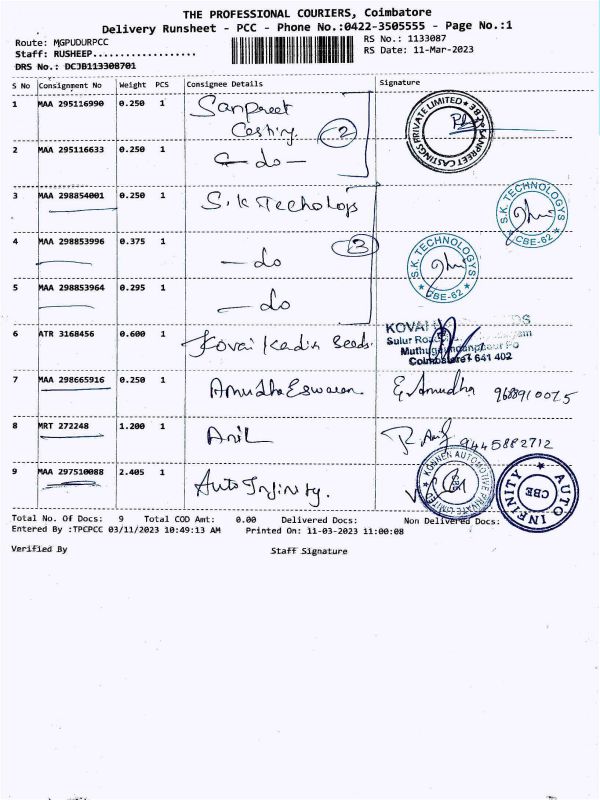 THE PROFESSIONAL COURIERS, Coimbatore
Delivery Runsheet - PCC - Phone No.:0422-3505555 - Page No.:1
Route: MGPUDURPCC
RS No.: 1133087
Staff: RUSHEEP...................
RS Date: 11-Mar-2023
DRS No.: DCJB113308701
S No Consignment No Weight PCS Consignee Details Signature
1 MAA 295116990 0.250 1 Sanpreet
Casting. 2
SANPREET CASTINGS PRIVATE LIMITED
2 MAA 295116633 0.250 1 - do -
3 MAA 298854001 0.250 1 S.K Techologs
S.K. TECHNOLOGYS CBE-62
4 MAA 298853996 0.375 1 - do 3
S.K. TECHNOLOGYS CBE-62
5 MAA 298853964 0.295 1 - do
6 ATR 3168456 0.600 1 Kovai Kadir Seeds.
KOVAI
Sulur
Coimbatore 641 402
7 MAA 298665916 0.250 1 Amudha Eswaran E. Amudha
8 MRT 272248 1.200 1 Anil 9445882712
9 MAA 297510088 2.405 1 Auto Infinity.
AUTOMOTIVE PRIVATE LIMITED
AUTO INFINITY CBE
Total No. Of Docs: 9 Total COD Amt: 0.00 Delivered Docs: Non Delivered Docs:
Entered By :TPCPCC 03/11/2023 10:49:13 AM Printed On: 11-03-2023 11:00:08
Verified By Staff Signature